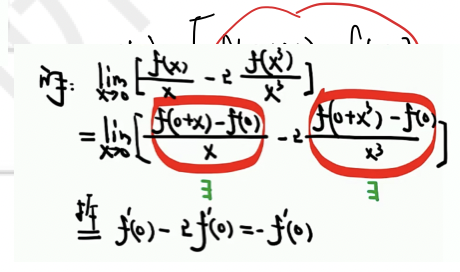 解: lim x→0 [f(x)/x - 2 f(x³)/x³]
= lim x→0 [(f(0+x)-f(0))/x - 2 (f(0+x³)-f(0))/x³]
∃ ∃
拆 = f'(0) - 2f'(0) = -f'(0)